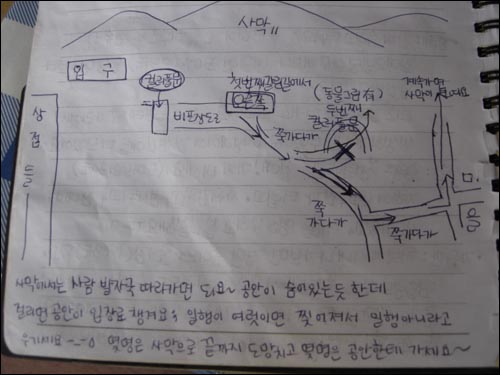 사막
입구
컬러동문
첫번째갈림길에서
오른쪽
(동물그림有)
두번째
컬러동문
계속가면
사막이보여요
상점들
비포장도로
쭉가다가
쭉
가다가
쭉가다가
마
을
사막에서는 사람 발자국 따라가면 되요~ 공안이 숨어있는듯 한데
걸리면 공안이 입장료 챙겨요; 일행이 여럿이면 찢어져서 일행아니라고
우기세요 -_-0 몇명은 사막으로 끝까지 도망치고 몇명은 공안한테 가세요~